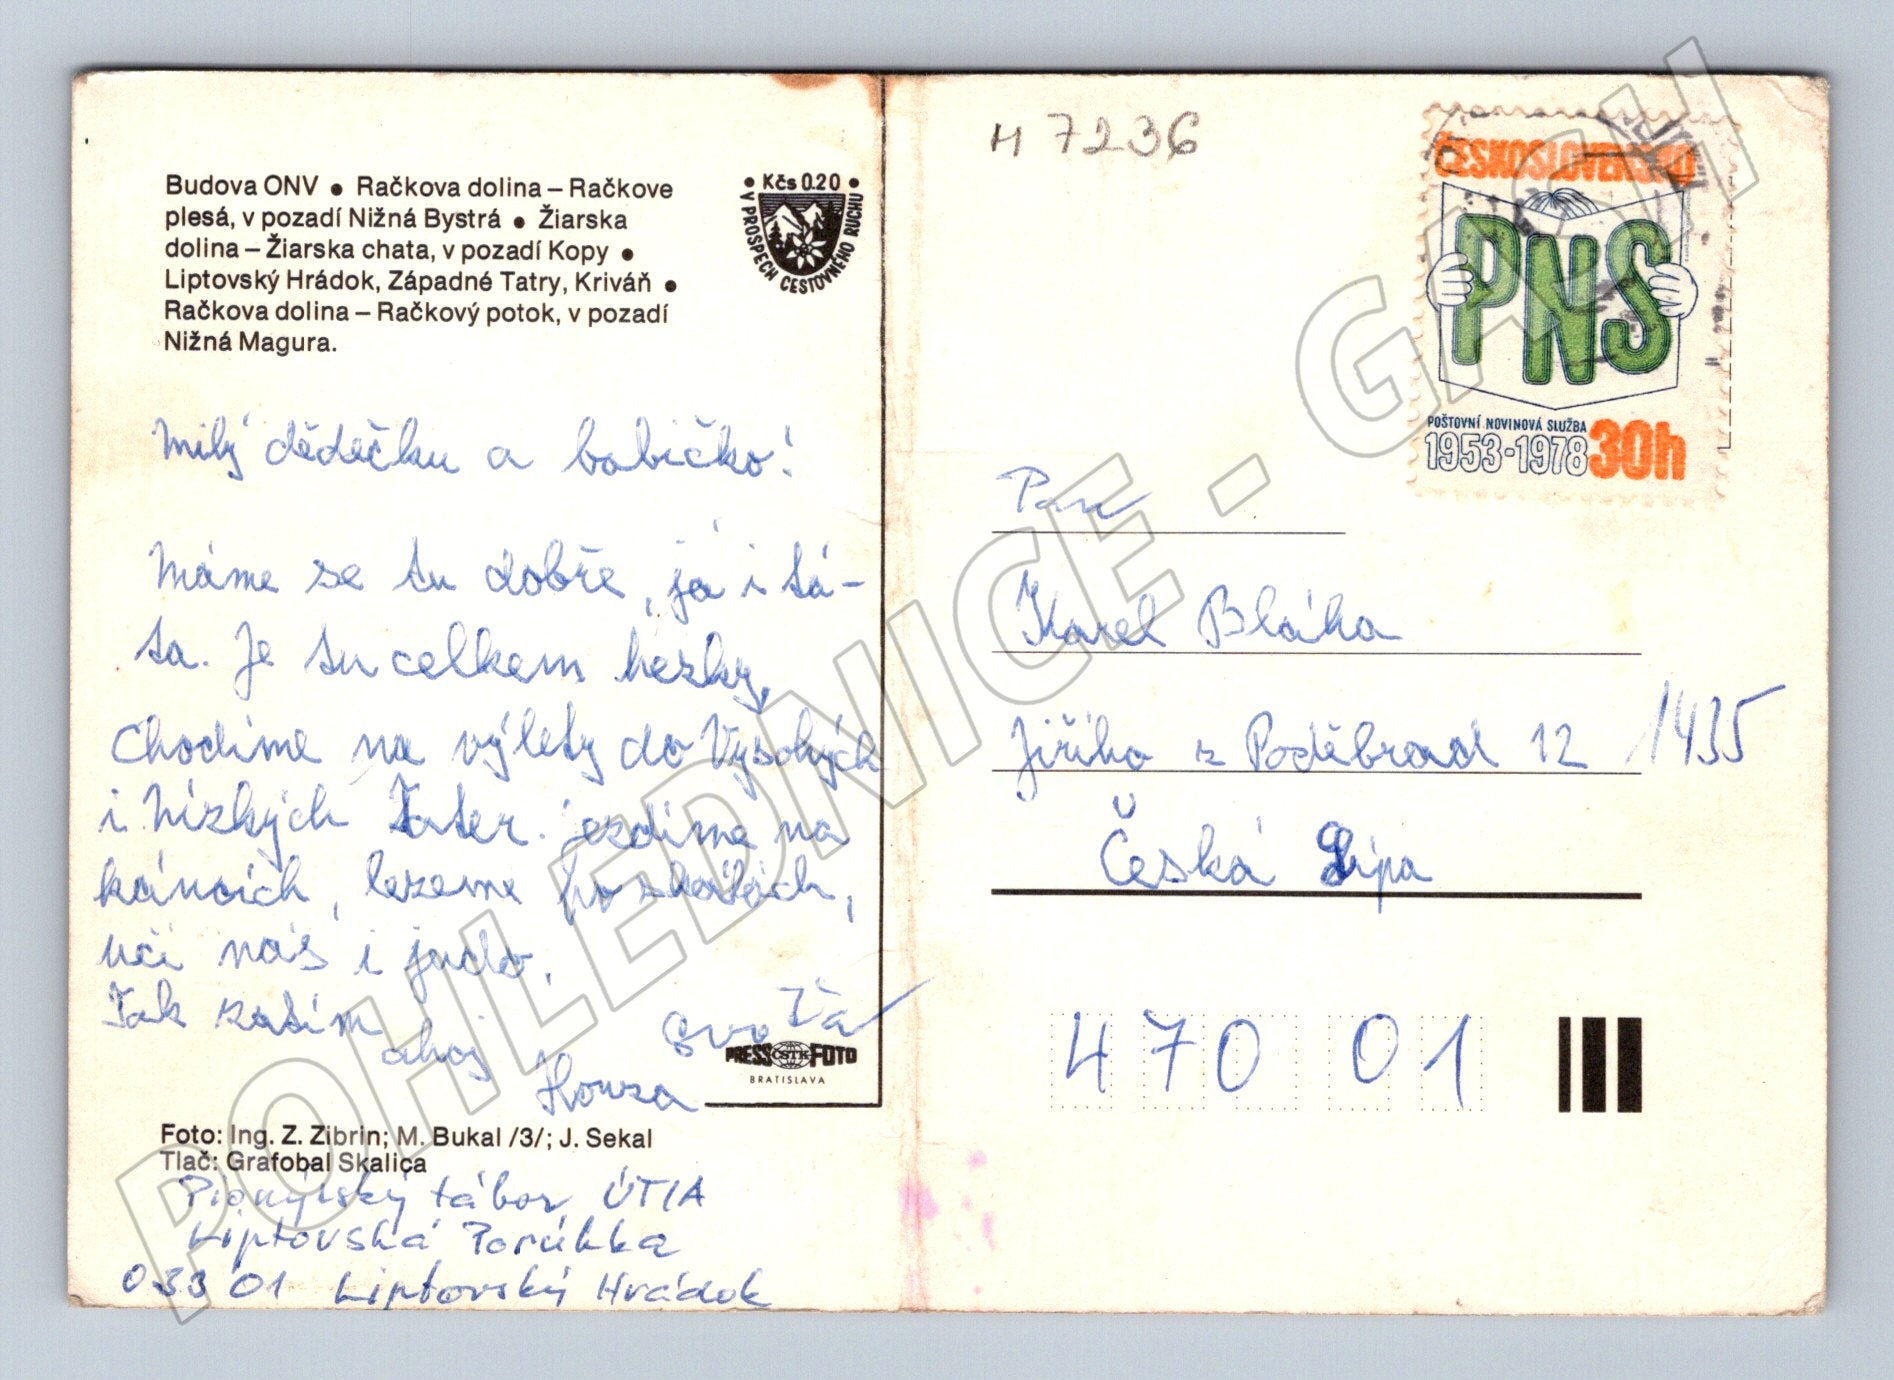 Budova ONV • Račkova dolina – Račkove
plesá, v pozadí Nižná Bystrá • Žiarska
dolina – Žiarska chata, v pozadí Kopy •
Liptovský Hrádok, Západné Tatry, Kriváň •
Račkova dolina – Račkový potok, v pozadí
Nižná Magura.
• Kčs 0.20 •
V PROSPECH CESTOVNÉHO RUCHU
Milý dědečku a babičko!
Máme se tu dobře, já i tá-
ta. Je tu celkem hezky,
chodíme na výlety do Vysokých
i Nízkých Tater. jezdíme na
kánoích, lezeme po skalách,
učí nás i judo.
Tak zatím
ahoj
Honza
PRESS ČSTK FOTO
BRATISLAVA
Foto: Ing. Z. Zibrin; M. Bukal /3/; J. Sekal
Tlač: Grafobal Skalica
Pionýrský tábor ÚTIA
Liptovská Porúbka
033 01 Liptovský Hrádok
H 7236
ČESKOSLOVENSKO
PNS
POŠTOVNÍ NOVINOVÁ SLUŽBA
1953-1978 30h
Pan
Karel Bláha
Jiřího z Poděbrad 12 1435
Česká Lípa
470 01
POHLEDNICE - GASH